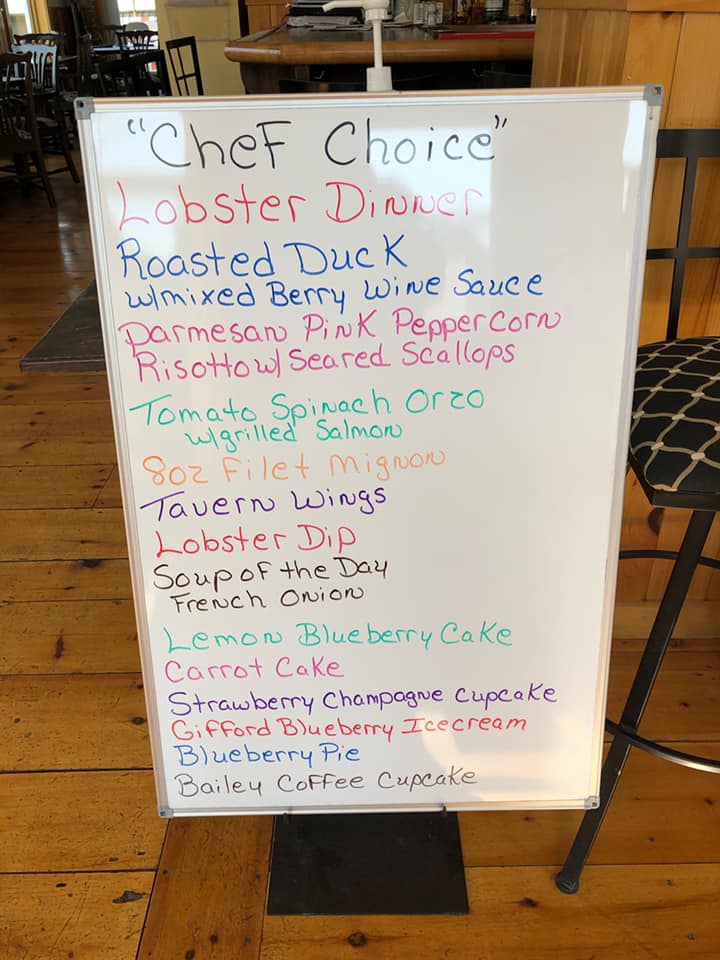 "Chef Choice"
Lobster Dinner
Roasted Duck
w/mixed Berry Wine Sauce
Parmesan Pink Peppercorn
Risotto w/ Seared Scallops
Tomato Spinach Orzo
w/grilled Salmon
8oz Filet Mignon
Tavern Wings
Lobster Dip
Soup of the Day
French Onion
Lemon Blueberry Cake
Carrot Cake
Strawberry Champagne Cupcake
Gifford Blueberry Icecream
Blueberry Pie
Bailey Coffee Cupcake